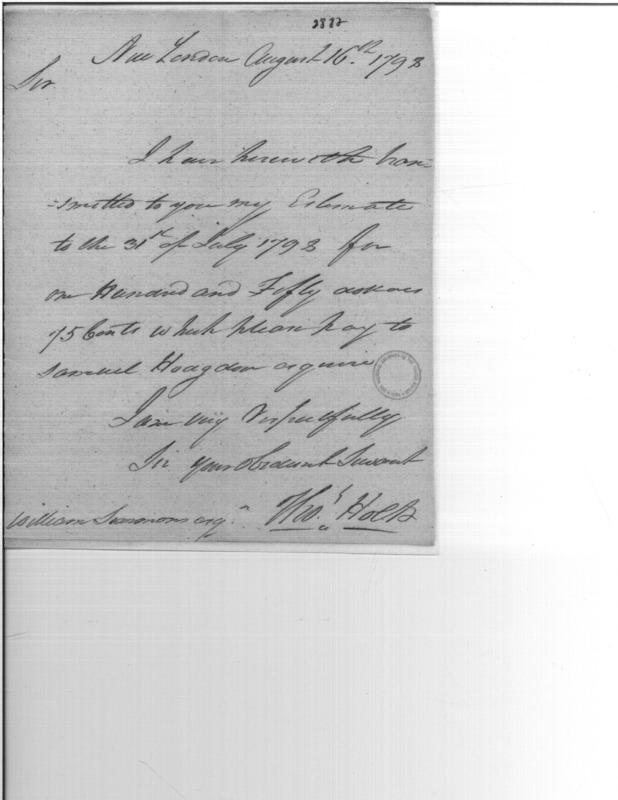 2882
New London August 16.th 1793
Sir
I have herewith tran
=smitted to you my Estimate
to the 31st of July 1793 for
one Hundred and Fifty dollars
75 Cents which please pay to
Samuel Hodgdon esquire
I am very Respectfully
Sir your obedient Servant
Thos Holt
William Simmons esqr